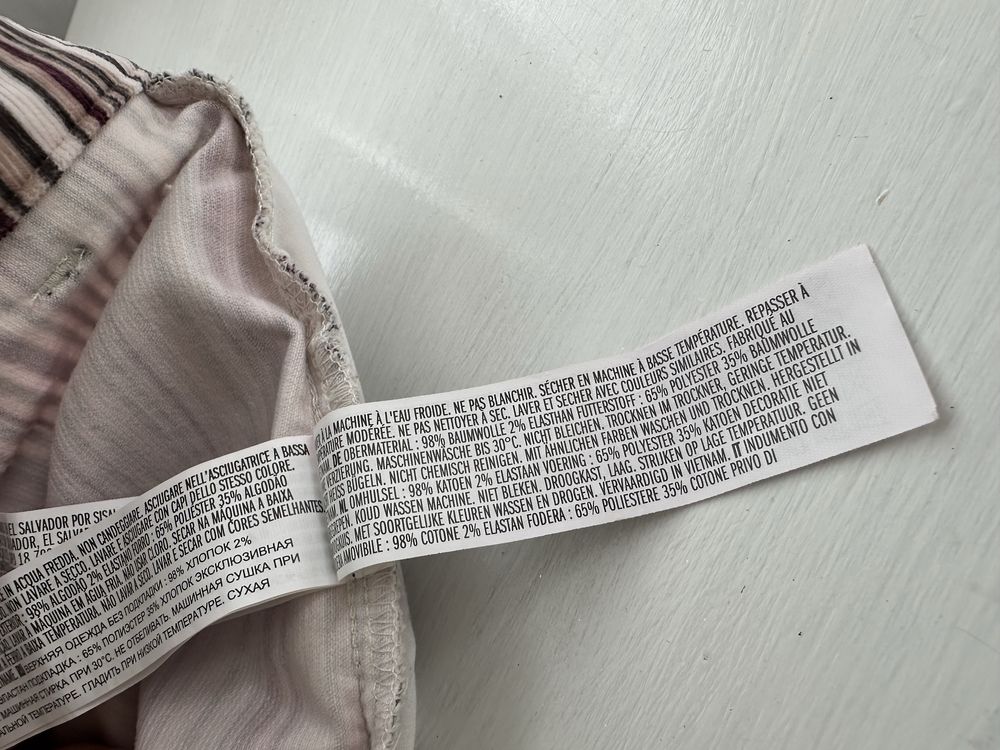 À LA MACHINE À L'EAU FROIDE. NE PAS BLANCHIR. SÉCHER EN MACHINE À BASSE TEMPÉRATURE. REPASSER À
MODÉRÉE. NE PAS NETTOYER À SEC. LAVER ET SECHER AVEC COULEURS SIMILAIRES. FABRIQUÉ AU
DE OBERMATERIAL : 98% BAUMWOLLE 2% ELASTHAN FUTTERSTOFF : 65% POLYESTER 35% BAUMWOLLE
MASCHINENWÄSCHE BIS 30°C. NICHT BLEICHEN. TROCKNEN IM TROCKNER, GERINGE TEMPERATUR.
BÜGELN. NICHT CHEMISCH REINIGEN. MIT ÄHNLICHEN FARBEN WASCHEN UND TROCKNEN. HERGESTELLT IN
NL OMHULSEL : 98% KATOEN 2% ELASTAN VOERING : 65% POLYESTER 35% KATOEN DECORATIE NIET
KOUD WASSEN MACHINE. NIET BLEKEN. DROOGKAST, LAAG. STRIJKEN OP LAGE TEMPERATUUR. GEEN
MET SOORTGELIJKE KLEUREN WASSEN EN DROGEN. VERVAARDIGD IN VIETNAM. IT INDUMENTO CON
AMOVIBILE : 98% COTONE 2% ELASTAN FODERA : 65% POLIESTERE 35% COTONE PRIVO DI
EL SALVADOR POR
EL
IN ACQUA FREDDA. NON CANDEGGIARE. ASCIUGARE NELL'ASCIUGATRICE A BASSA
NON LAVARE A SECCO. LAVARE E ASCIUGARE CON CAPI DELLO STESSO COLORE.
: 98% ALGODÃO 2% ELASTANO FORRO : 65% POLIÉSTER 35% ALGODÃO
LAVAR À MÁQUINA EM ÁGUA FRIA. NÃO USAR CLORO. SECAR NA MÁQUINA A BAIXA
A BAIXA TEMPERATURA. NÃO LAVAR A SECO. LAVAR E SECAR COM CORES SEMELHANTES.
ВЕРХНЯЯ ОДЕЖДА БЕЗ ПОДКЛАДКИ : 98% ХЛОПОК 2%
ПОДКЛАДКА : 65% ПОЛИЭСТЕР 35% ХЛОПОК ЭКСКЛЮЗИВНАЯ
МАШИННАЯ СТИРКА ПРИ 30°C. НЕ ОТБЕЛИВАТЬ. МАШИННАЯ СУШКА ПРИ
ТЕМПЕРАТУРЕ. ГЛАДИТЬ ПРИ НИЗКОЙ ТЕМПЕРАТУРЕ. СУХАЯ